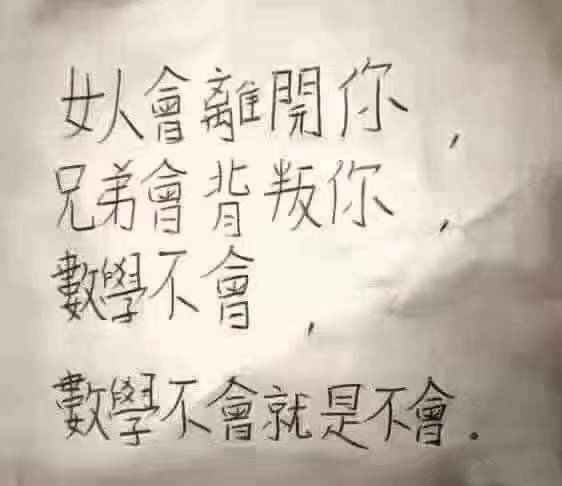 女人會離開你，
兄弟會背叛你，
數學不會，
數學不會就是不會.